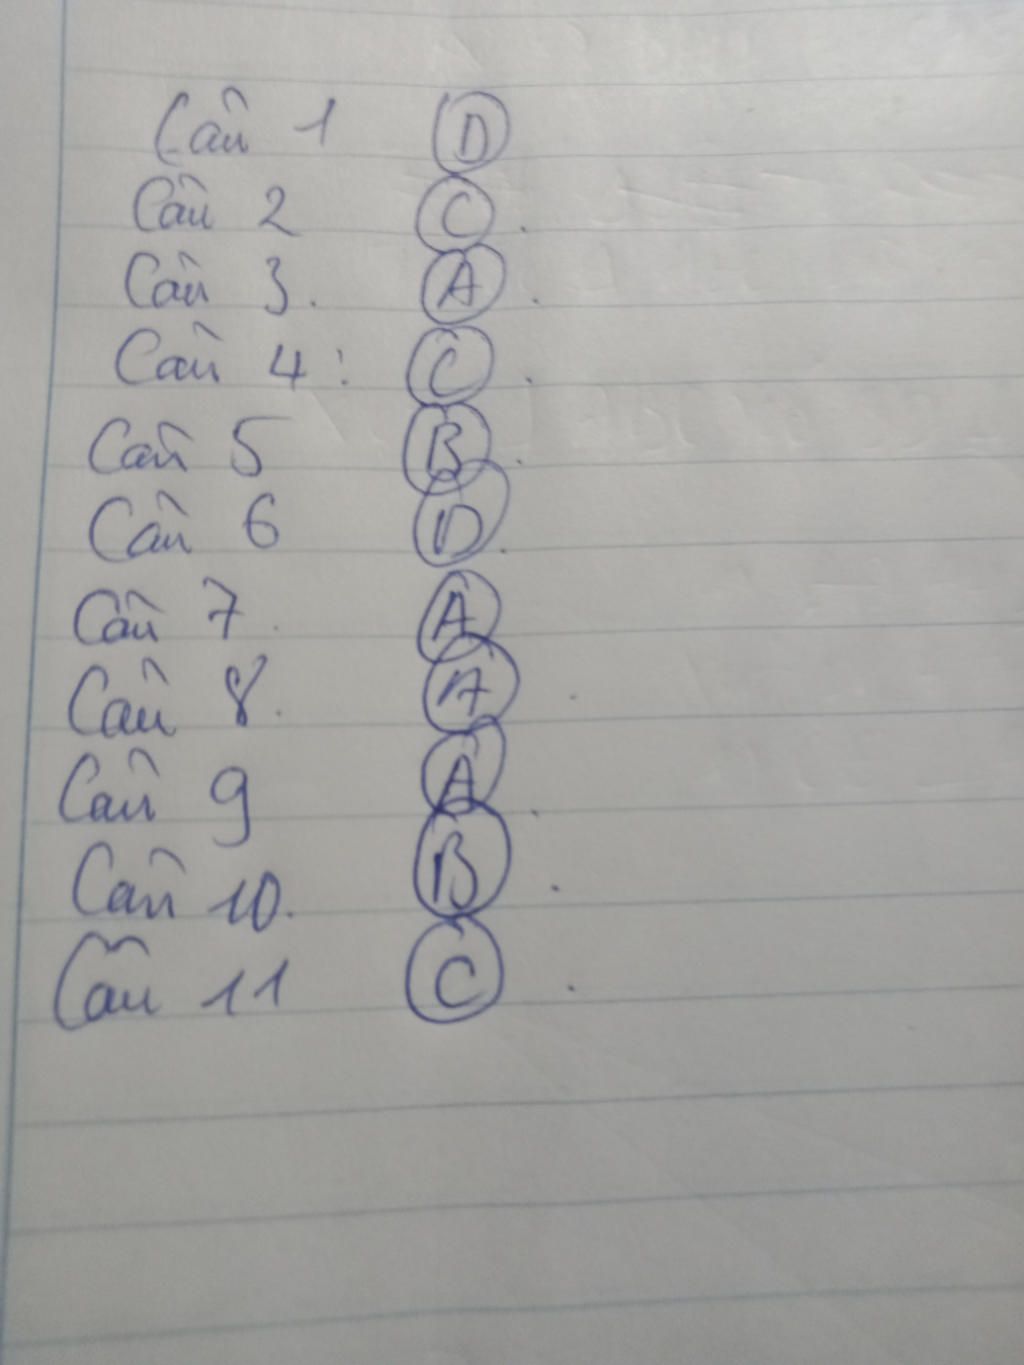 Câu 1 D
Câu 2 C.
Câu 3. A.
Câu 4: C.
Câu 5 B.
Câu 6 D.
Câu 7. A
Câu 8. A.
Câu 9 A.
Câu 10. B.
Câu 11 C.